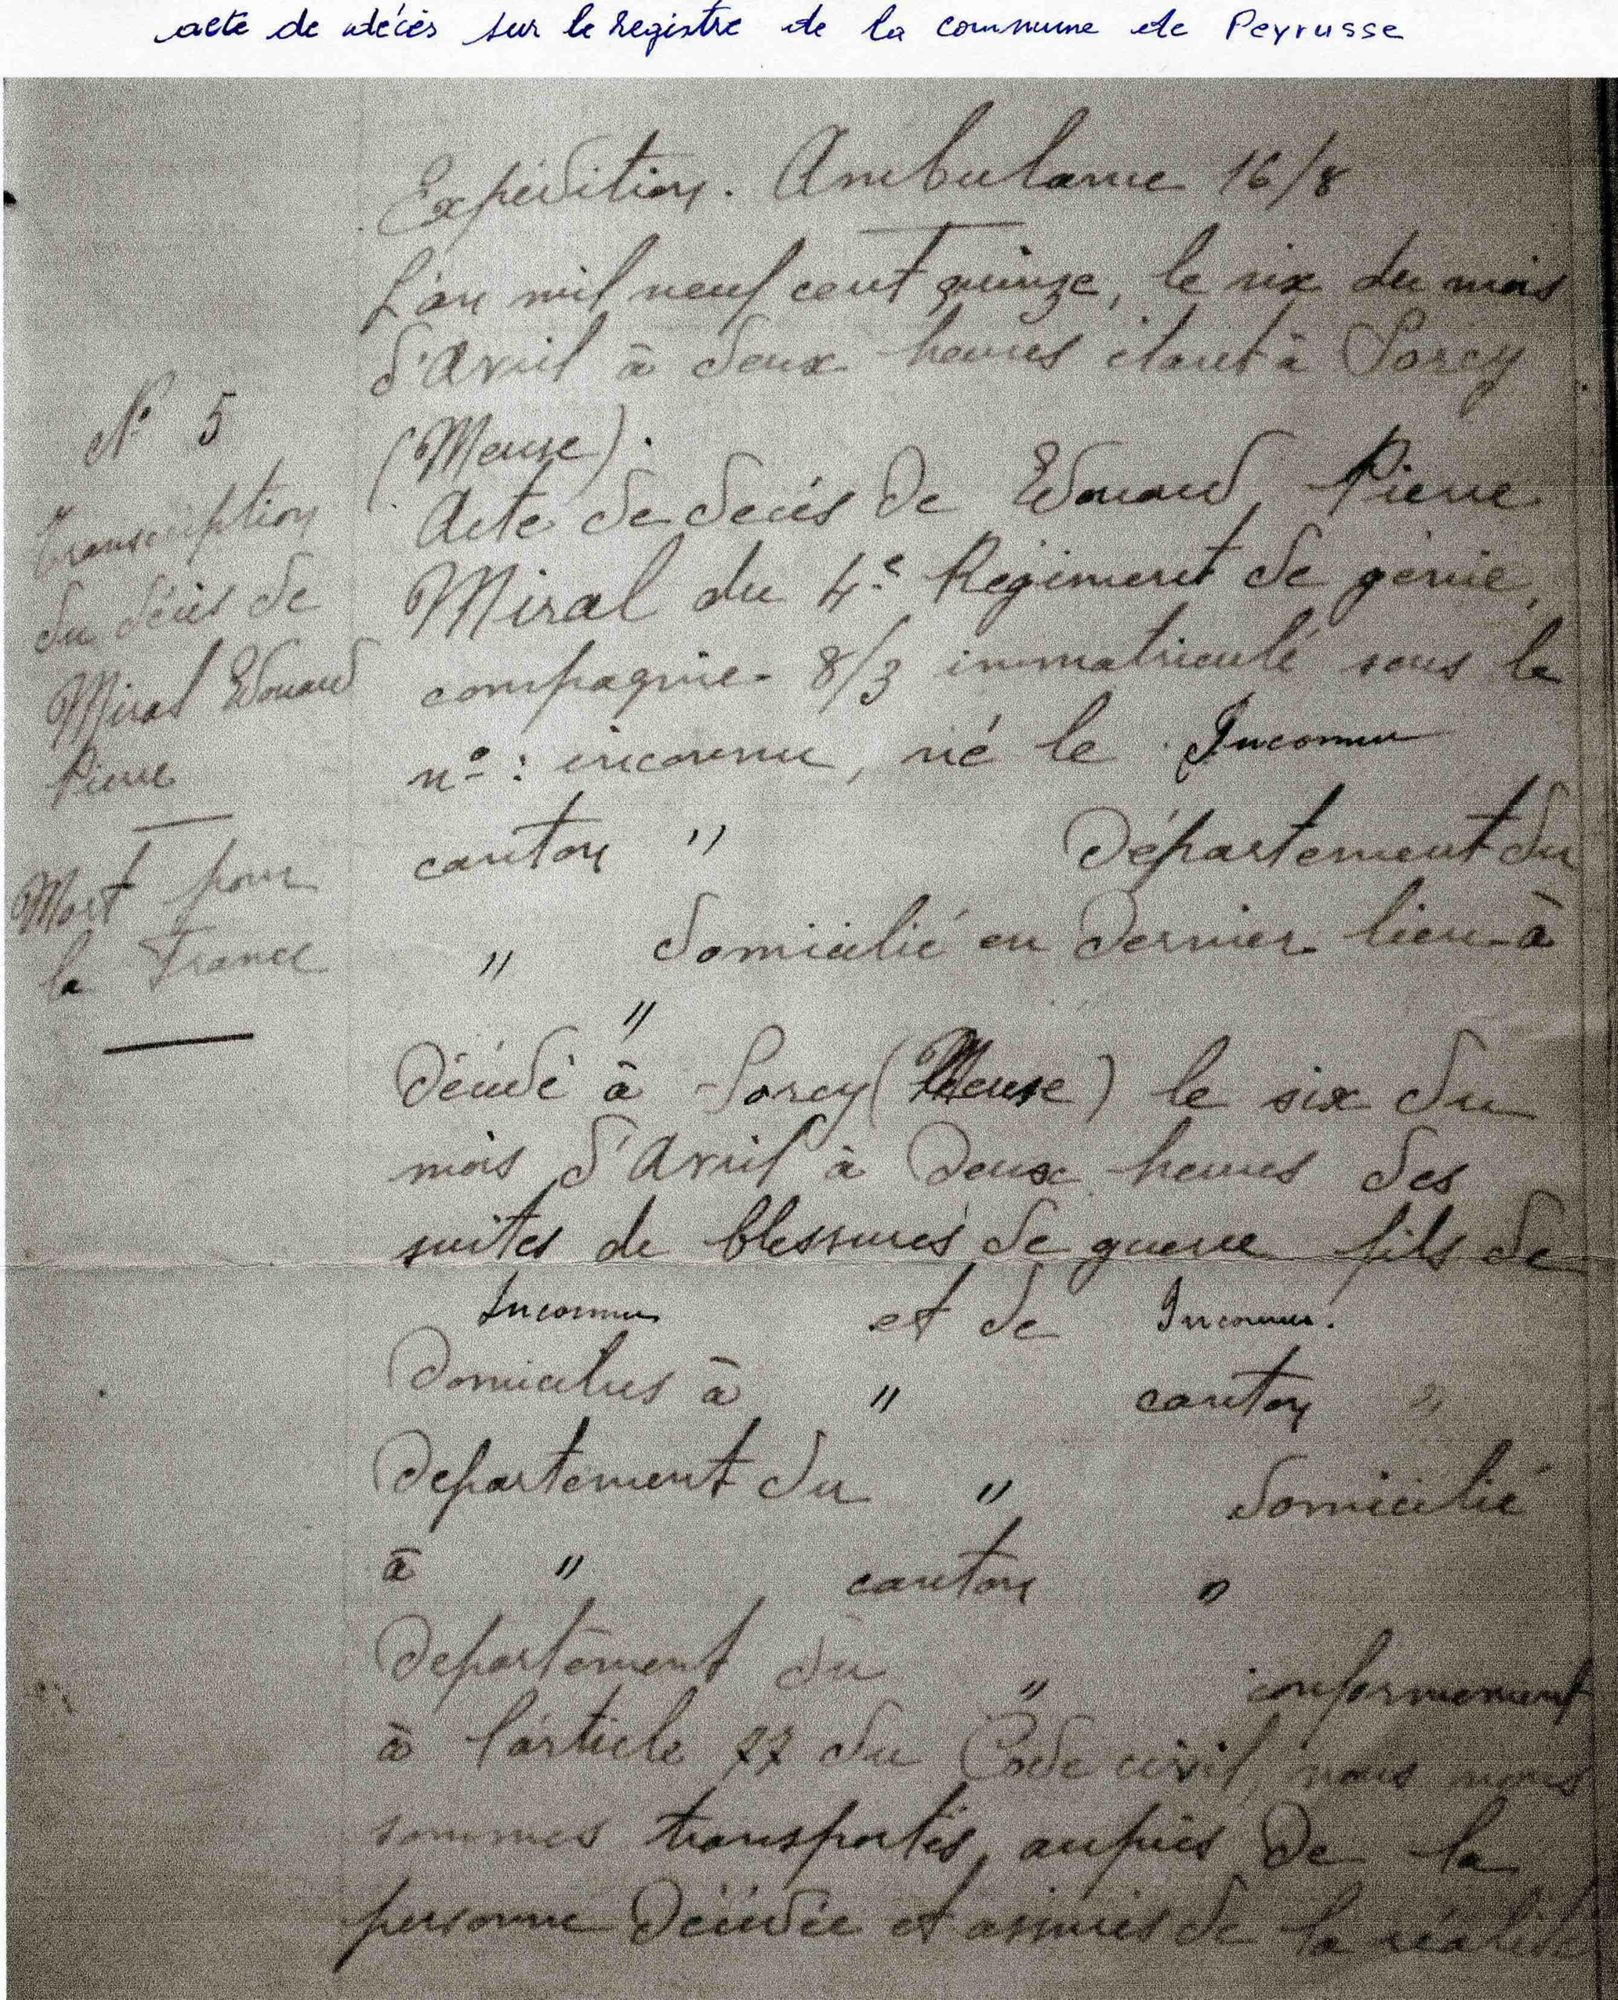 acte de décès sur le registre de la commune de Peyrusse
Expédition. Ambulance 16/8
L'an mil neuf cent quinze, le six du mois
d'Avril à deux heures étant à Sorcy
(Meuse).
N° 5
Transcription
du décès de
Miral Edouard
Pierre
Mort pour
la France
Acte de décès de Edouard, Pierre
Miral du 4e Régiment de génie,
compagnie 8/3 immatriculé sous le
n° : inconnu, né le Inconnu
canton " Département du
" domicilié en dernier lieu à
"
Décédé à Sorcy (Meuse) le six du
mois d'Avril à deux heures des
suites de blessures de guerre fils de
Inconnu et de Inconnu.
Domiciliés à " canton "
Département du " domicilié
à " canton "
Département du " conformément
à l'article 77 du Code civil, nous nous
sommes transportés auprès de la
personne décédée et assurés de la réalité